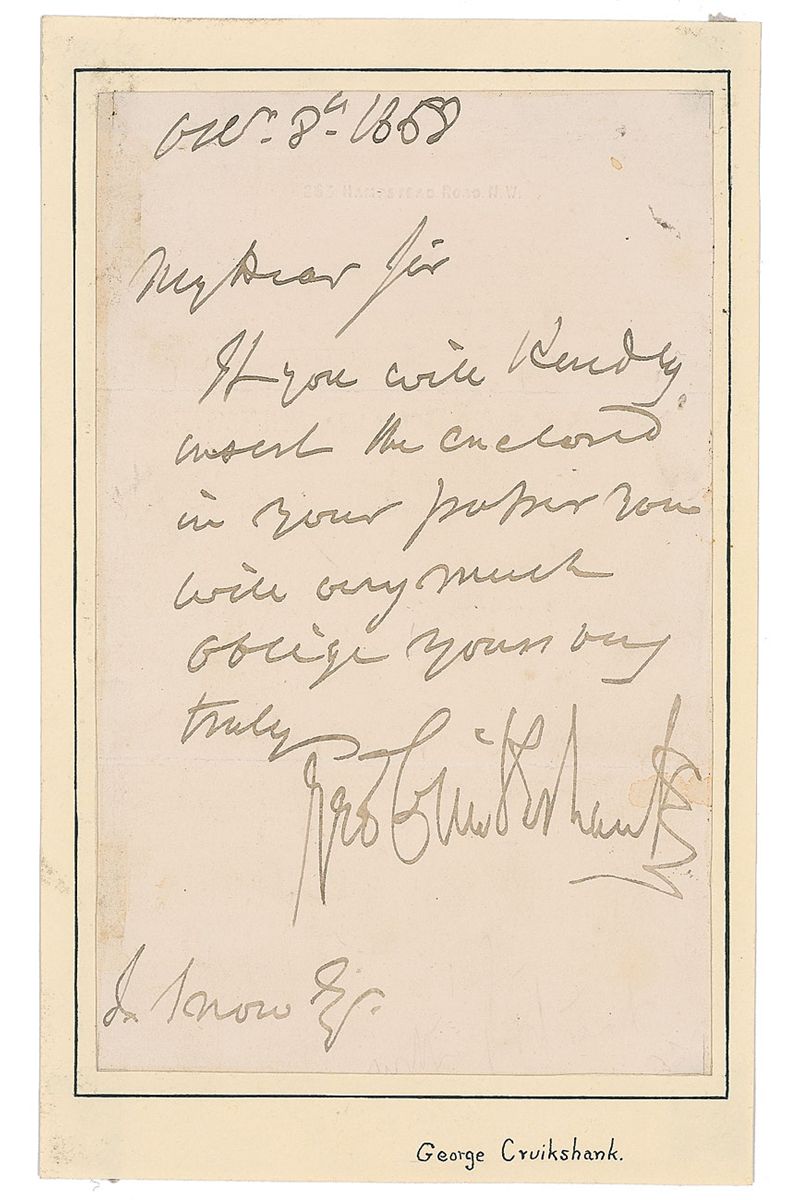 Octr. 8th 1868
263 HAMPSTEAD ROAD. N.W.
My Dear Sir
If you will Kindly
insert the enclosed
in your paper you
will very much
oblige yours very
truly
Geo Cruikshank
Snow Esq.
George Cruikshank.